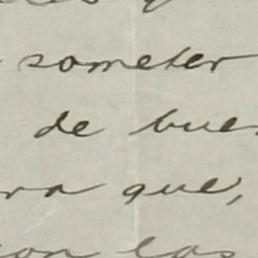 someter
de bue
ra que,
con las